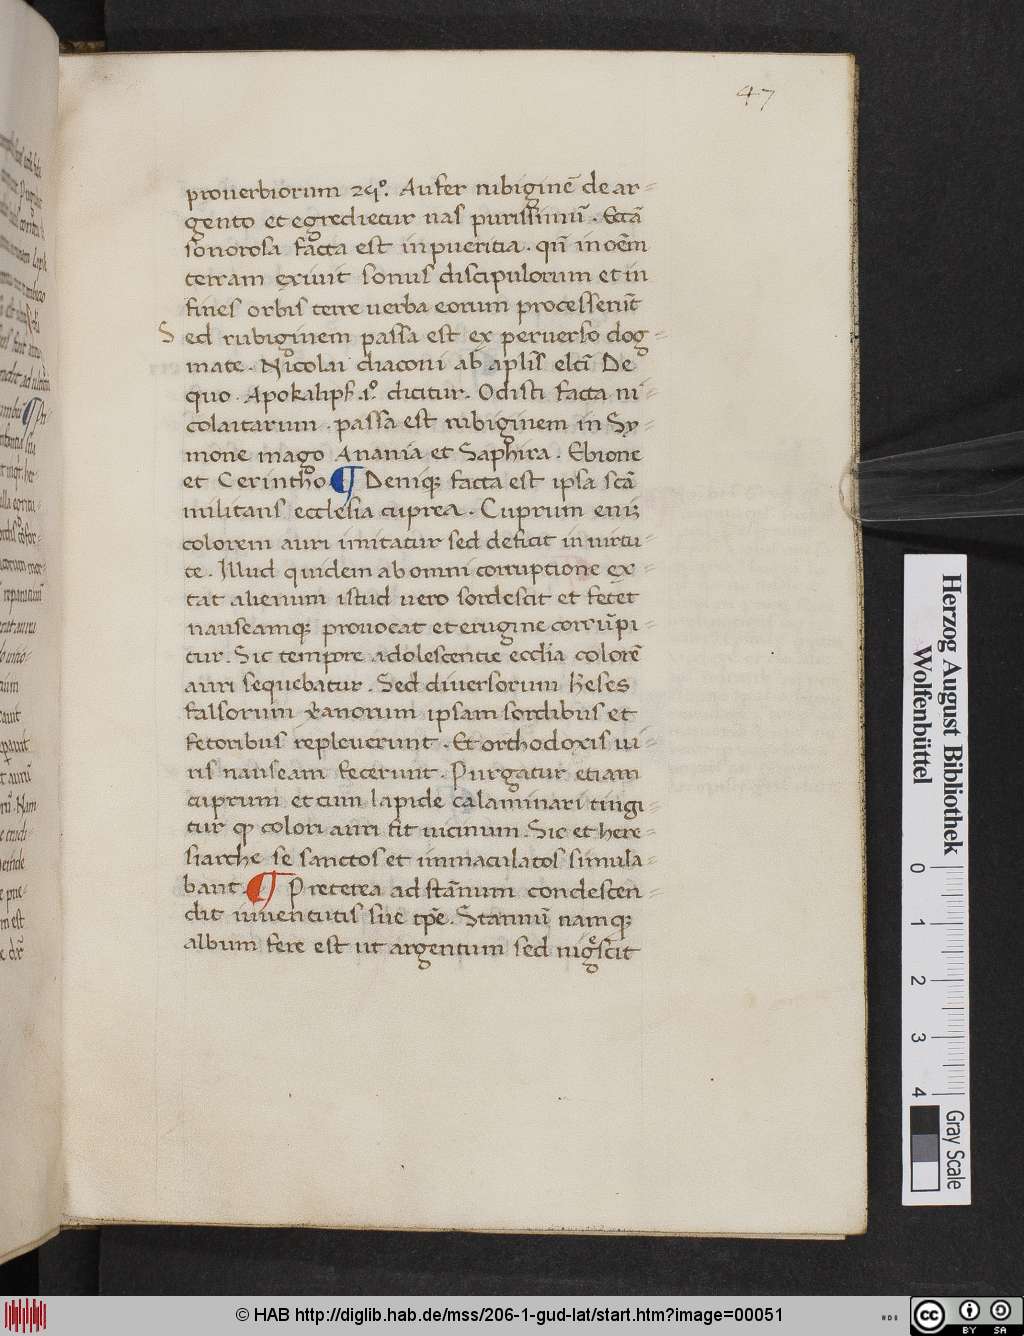 47
prouerbiorum 25º. Aufer rubiginē de ar-
gento et egredietur uas purissimū. Etiā
sonorosa facta est in pueritia. qn̄ in oēm
terram exiuit sonus discipulorum et in
fines orbis terre uerba eorum processerūt
Sed rubiginem passa est ex peruerso dog-
mate. Nicolai diaconi ab aplis elcti De
quo. Apokalips. 1º. dicitur. Odisti facta ni-
colaitarum. passa est rubiginem in Sy-
mone mago Anania et Saphira. Ebione
et Cerintho ¶ Deniqꝫ facta est ipsa scā
militans ecclesia cuprea. Cuprum enīꝫ
colorem auri imitatur sed deficit in uirtu-
te. Illud quidem ab omni corruptione ex-
tat alienum istud uero sordescit et fetet
nauseamqꝫ prouocat et erugine corrūpi-
tur. Sic tempore adolescentie ecclia colorē
auri sequebatur. Sed diuersorum heses
falsorum xp̄anorum ipsam sordibus et
fetoribus repleuerunt. Et orthodoxis ui-
ris nauseam fecerunt. Purgatur etiam
cuprum et cum lapide calaminari tingi-
tur qꝫ colori auri fit uicinum. Sic et here-
siarche se sanctos et immaculatos simula-
bant. ¶ Preterea ad stānum condescen-
dit iuuentutis sue tp̄e. Stannū namqꝫ
album fere est ut argentum sed nigrescit
Herzog August Bibliothek
Wolfenbüttel
0 1 2 3 4
Gray Scale
© HAB http://diglib.hab.de/mss/206-1-gud-lat/start.htm?image=00051
HAB
cc BY SA